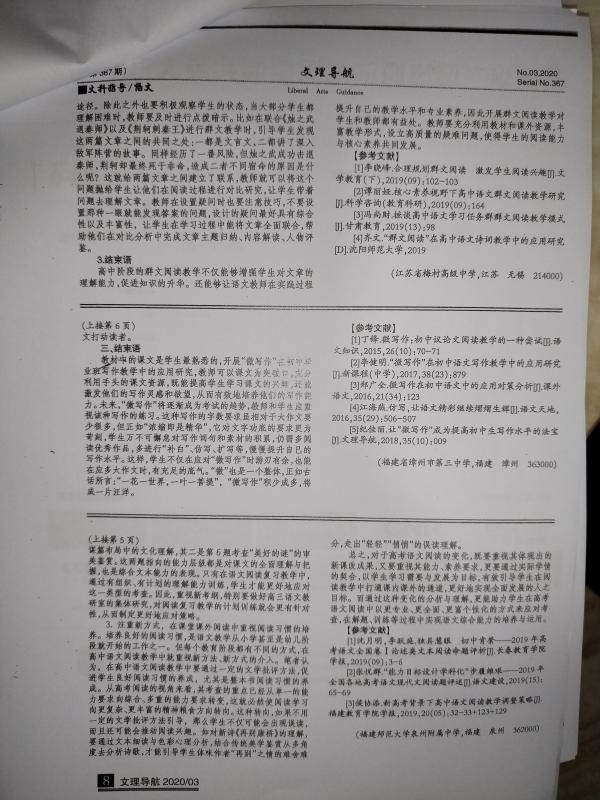 第 367 期)
文理导航
No.03,2020
Serial No.367
■文科指导/语文
Liberal Arts Guidance
途径。除此之外也要积极观察学生的状态,当大部分学生都
理解困难时,教师要及时进行点拨暗示。比如在联合《烛之武
退秦师》以及《荆轲刺秦王》进行群文教学时,引导学生发现
这两篇文章之间的共同之处:一都是文言文,二都讲了深入
敌军阵营的故事。同样经历了一番风险,但烛之武成功击退
秦师,荆轲却最终死于非命,造成二者不同宿命的原因是什
么呢?这就给两篇文章之间建立了联系,教师就可以将这个
问题抛给学生让他们在阅读过程进行对比研究,让学生带着
问题去理解文章。教师在设置疑问时也要注意技巧,不要设
置那种一眼就能发现答案的问题,设计的疑问最好具有综合
性以及丰富性,让学生在学习过程中能将文章全面联合,帮
助他们在对比分析中完成文章主题归纳、内容解读、人物评
鉴。
3.结束语
高中阶段的群文阅读教学不仅能够增强学生对文章的
理解能力,促进知识的升华。还能够让语文教师在实践过程
提升自己的教学水平和专业素养,因此开展群文阅读教学对
学生和教师都有益处。教师要充分利用教材和课外资源,丰
富教学形式,设立高质量的疑难问题,使得学生的阅读能力
与核心素养共同发展。
【参考文献】
[1]李晓峰.合理规划群文阅读 激发学生阅读兴趣[J].文
学教育(下),2019(09):102-103
[2]谭丽娅.核心素养视野下高中语文群文阅读教学研究
[J].科学咨询(教育科研),2019(09):164
[3]马尚财.拔读高中语文学习任务群群文阅读教学模式
[J].甘肃教育,2019(13):98
[4]齐文.“群文阅读”在高中语文诗词教学中的应用研究
[D].沈阳师范大学,2019
(江苏省梅村高级中学,江苏 无锡 214000)
(上接第 6 页)
文打动读者。
三、结束语
教材中的课文是学生最熟悉的,开展“微写作”在初中毕
业班写作教学中的应用研究,教师可以课文为突破口,充分
利用手头的课文资源,既能提高学生学习课文的兴趣,还能
激发他们的写作灵感和欲望,从而有效地培养他们的写作能
力。未来,“微写作”将逐渐成为考试的趋势,教师和学生应重
视读种写作的练习。这种写作的字数要求虽相对于大作文要
少很多,但正如“浓缩即是精华”,它对文字功底的要求更为
苛刻,学生万不可懈怠对写作词句和素材的积累,仍需多阅
读优秀作品,多进行“补白”、仿写、扩写等,慢慢提升自己的
写作水平。这样,学生不仅在应对“微写作”时游刃有余,也能
在应多大作文时,有充足的底气。“微”也是一个整体,正如古
话所言:“一花一世界,一叶一菩提”,“微写作”积少成多,将
成一片汪洋。
【参考文献】
[1]丁锋.微写作:初中议论文阅读教学的一种尝试[J].语
文知识,2015,26(10):70-71
[2]李健明.“微写作”在初中语文写作教学中的应用研究
[J].新课程(中学),2017,38(23):879
[3]郑广会.微写作在初中语文中的应用对策分析[J].课外
语文,2016,21(34):123
[4]江海燕.仿写,让语文精彩继续熠熠生辉[J].语文天地,
2016,35(29):506-507
[5]纪佳丽.让“微写作”成为提高初中生写作水平的法宝
[J].文理导航,2018,35(10):009
(福建省漳州市第三中学,福建 漳州 363000)
(上接第 5 页)
谋篇布局中的文化理解,其二是第 6 题考查“美好的谜”的审
美鉴赏。这两题指向的能力层级都是对课文的全面理解与把
握,也是综合文本能力的表现。只有在语文阅读复习教学中,
通过有组织、有计划的理解能力训练,学生才能更好地应对
这一类型的考查。因此,重视新考纲,特别要做好高三语文教
研室的集体研究,对阅读复习教学的计划训练就会更有针对
性,从而制定更好地应对策略。
3. 注重新方式,在课堂课外阅读中重视阅读习惯的培
养。培养良好的阅读习惯,是语文教学从小学甚至是幼儿阶
段就开始的工作之一。但每个教育阶段都有不同的方式,在
高中语文阅读教学中就重视新方法、新方式的介入。笔者认
为,在高中语文阅读教学中要通过一定的文学批评方法,促
进学生良好阅读习惯的养成,尤其是整本书阅读习惯的养
成。从高考阅读的视角来看,其考查的重点已经从单一的能
力要求向综合、多重的能力要求转变,这就必然使阅读学习
向更复杂、更丰富的精神粮食方向转向。这种转向,如果不用
一定的文学批评方法引导,那么学生不仅可能会出现误读,
而且还可能会推动阅读兴趣。如对新诗《再别康桥》的理解,
要通过文本细读与色彩心理分析,结合传统美学鉴赏从多角
度去分析诗歌,才能引导学生体味作者“再别”之情的难舍难
分,走出“轻轻”“悄悄”的误读理解。
总之,对于高考语文阅读的变化,既要重视其体现出的
新课改成果,又要重视其能力、素养要求,更要通过实际学情
的契合,以学生学习需要与发展为目标,有效引导学生在阅
读教学中打通课内课外的通道,更好地实现全面发展的人之
目标。而通过这种变化的分析与理解,更能助力学生在高考
语文阅读中以更专业、更全面、更富个性化的方式来应对考
查,在解题、训练等过程中实现语文综合能力的培养与运用。
【参考文献】
[1]沈月明,李跃庭.独具慧眼 初中肯綮——2019 年高
考语文全国卷Ⅰ论述类文本阅读命题评析[J].长春教育学院
学报,2019(09):3-6
[2]张优辉.“能力目标设计学科化”步履维艰——2019 年
全国各地高考语文现代文阅读题评述[J].语文建设,2019(15):
65-69
[3]侯协添.新高考背景下高中语文阅读教学调整策略[J].
福建教育学院学报,2019,20(05):32-33+123+129
(福建师范大学泉州附属中学,福建 泉州 362000)
8 文理导航 2020/03